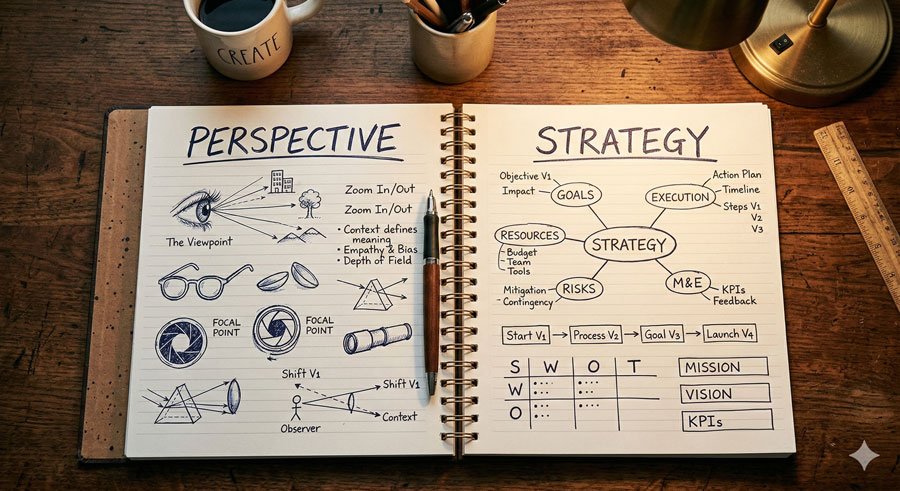 CREATE
PERSPECTIVE
The Viewpoint
Zoom In/Out
Zoom In/Out
• Context defines
meaning
• Empathy & Bias
• Depth of Field
FOCAL
POINT
FOCAL
POINT
Shift V1
Shift V1
Observer
Context
STRATEGY
Objective V1
Impact
GOALS
EXECUTION
Action Plan
Timeline
Steps V1
V2
V3
RESOURCES
Budget
Team
Tools
STRATEGY
Mitigation
Contingency
RISKS
M&E
KPIs
Feedback
Start V1
Process V2
Goal V3
Launch V4
S W O T
W
O
MISSION
VISION
KPIs